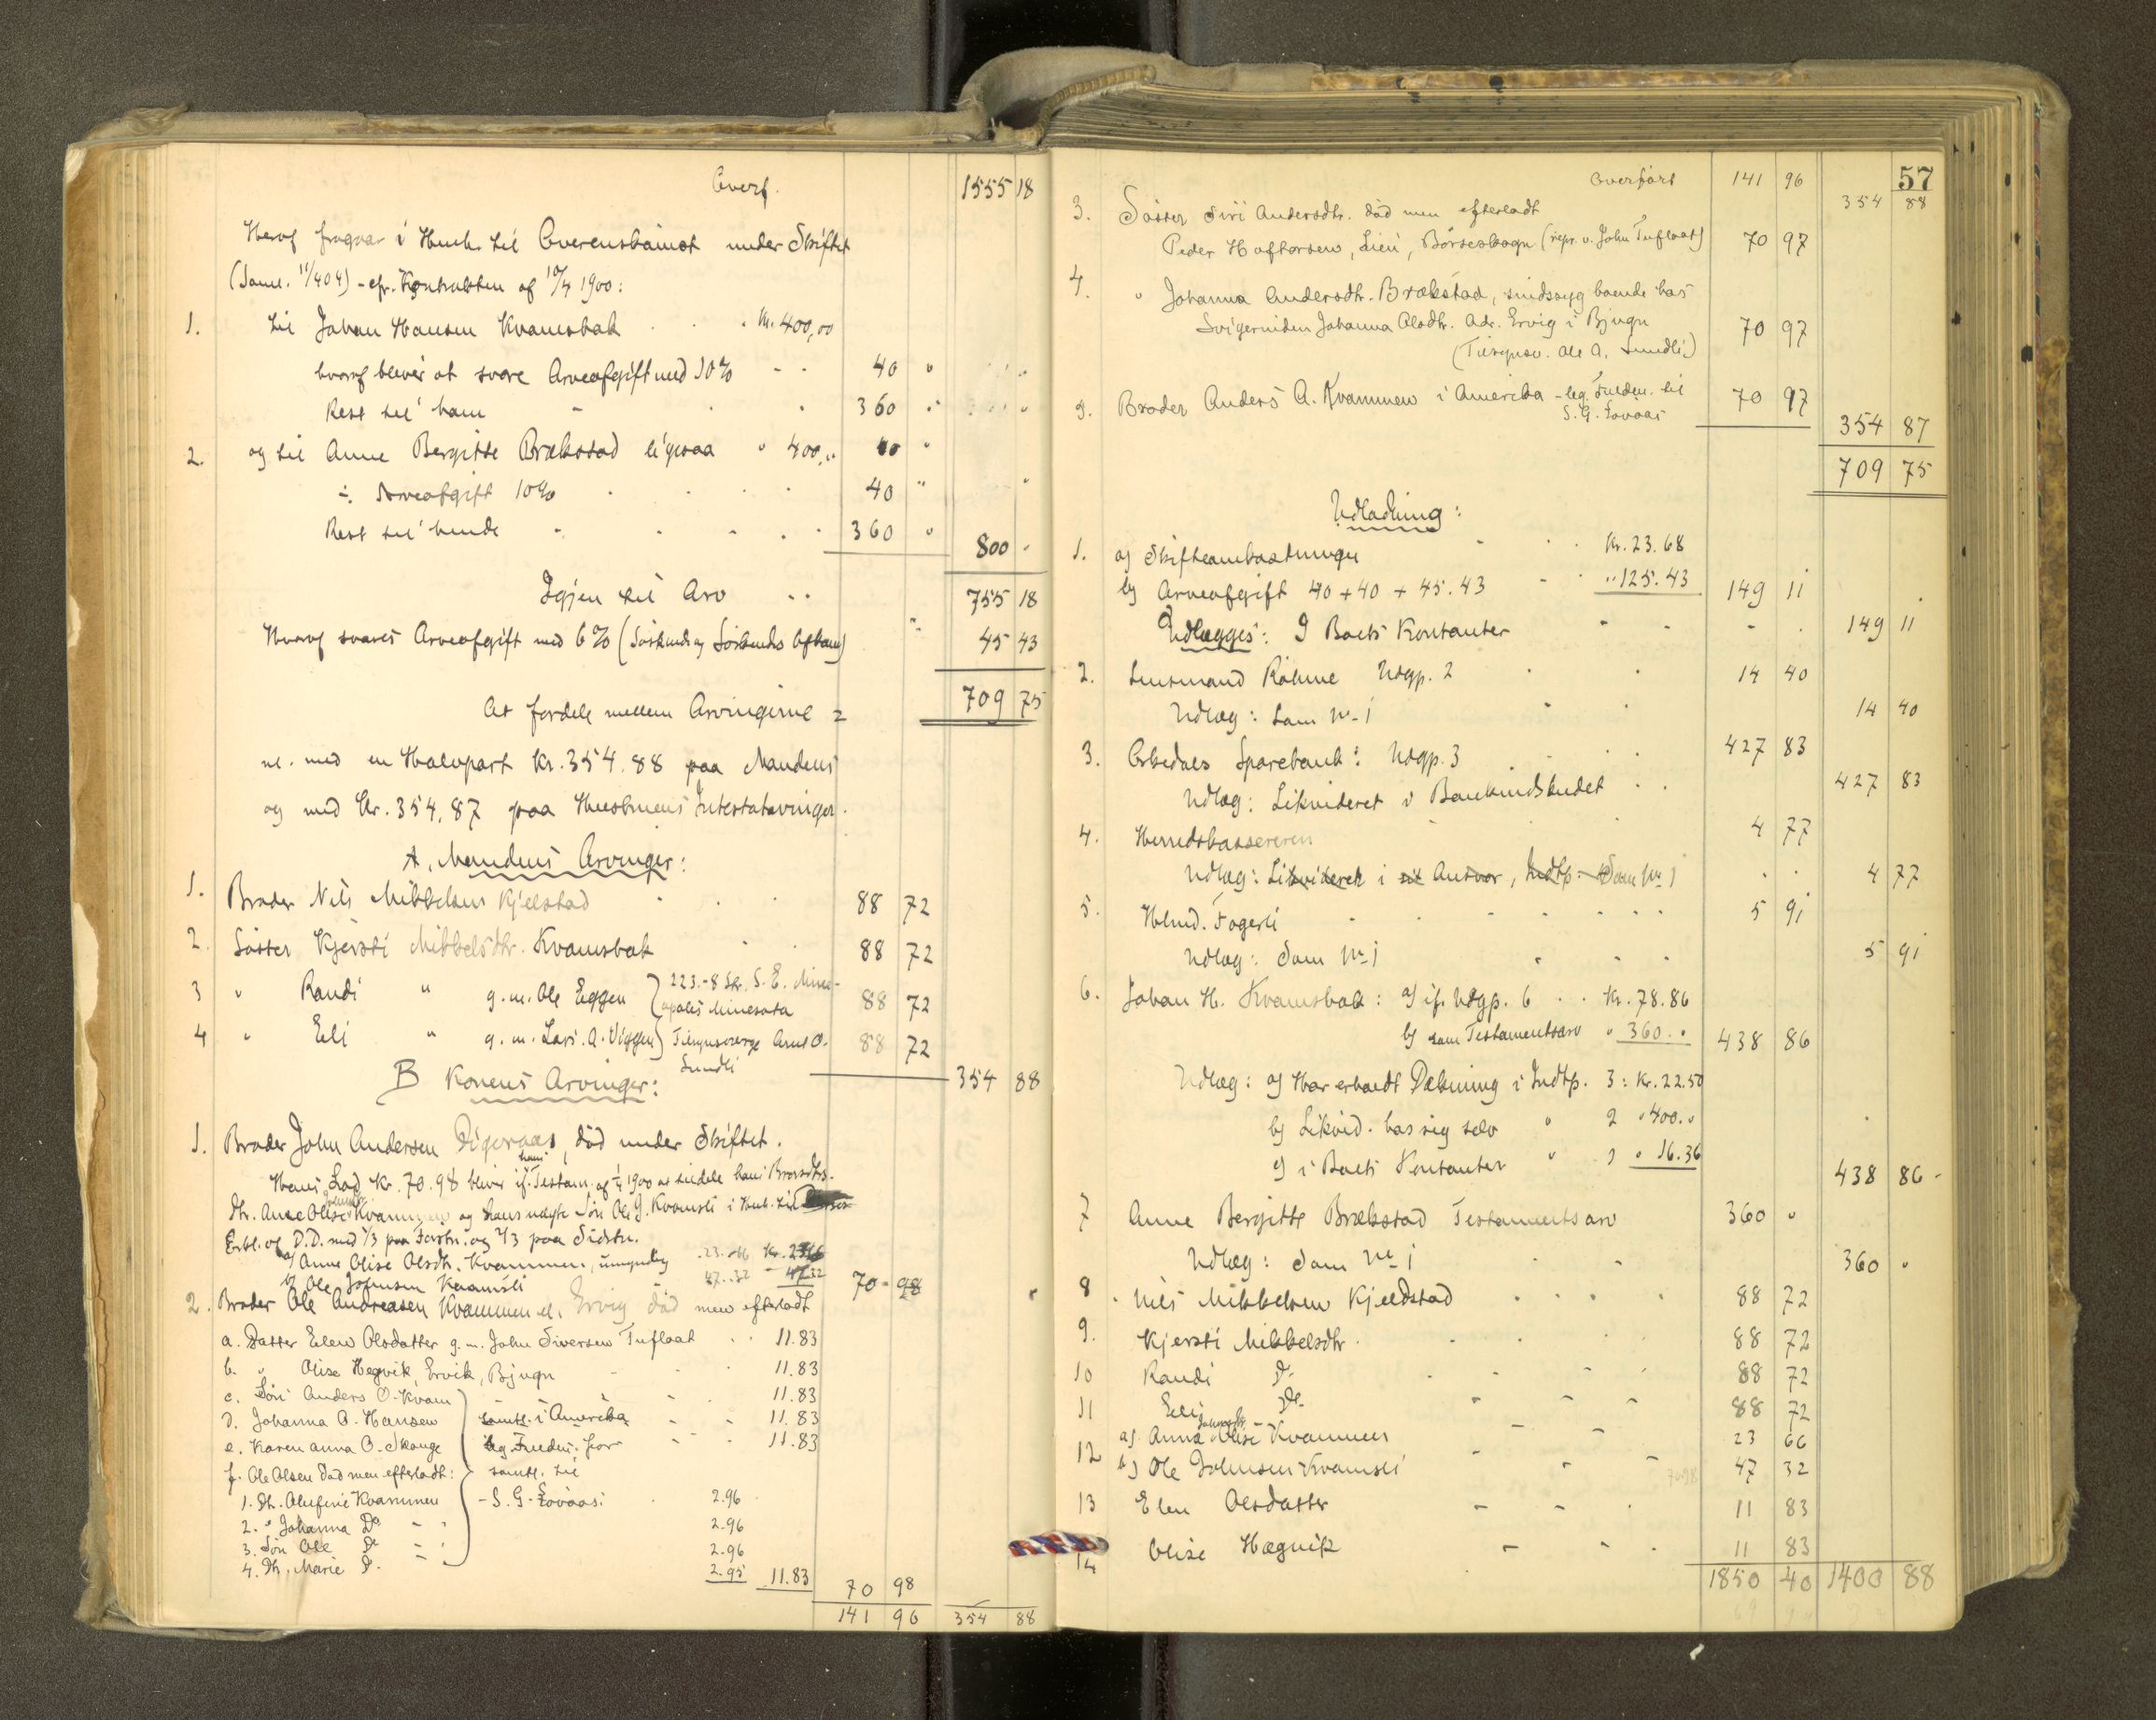 Overf. 1555 18
Herof fragaar i Henh. til Overenskomst under Skiftet
(Saml. 11/404) - cfr. Kontrakten af 10/4 1900:
1. til Johan Hansen Kvamsbak Kr. 400,00
hvoraf bliver at svare Arveafgift med 10% 40 "
Rest til ham 360 "
2. og til Anne Bergitte Brækstad ligesaa " 400,"
÷ Arveafgift 10% 40 "
Rest til hende 360 " 800 "
Igjen til Arv 755 18
Hvorof svares Arveafgift med 6% (Søskende og Søskendes Afkom) 45 43
At fordele mellem Arvingerne = 709 75
nl. med en Halvpart Kr. 354.88 paa Mandens
og med Kr. 354,87 paa Hustruens Intestatarvinger.
A. Mandens Arvinger:
1. Broder Nils Mikkelsen Kjelstad 88 72
2. Søster Kjersti Mikkelsdtr. Kvamsbak 88 72
3 " Randi " g.m. Ole Eggen } 223.-8 Str. S.E. Minea-
apolis Minesota 88 72
4 " Eli " g.m. Lars A. Viggen) Tilsynsverge Arnt O.
Sundli 88 72
354 88
B Konens Arvinger:
1. Broder John Andersen Digeraas, død under Skiftet.
Hans Lod Kr. 70.98 bliver if. hans Testam. af 1900 at tildele hans Brorsdtrs.
Dtr. Anne Olise Johnsdtr. Kvammen og hans uægte Søn Ole J. Kvamsli i Henh. til
Erkl. af D.D. med 1/3 paa Førstn. og 2/3 paa Sidstn.
a) Anne Olise Olsdtr. Kvammen, umyndig 23.66 Kr. 23.66
b) Ole Johnsen Kvamsli 47.32 - 47.32 70 - 98
2. Broder Ole Andreasen Kvammen el. Ervig død men efterladt
a. Datter Elen Olsdatter g.m. John Siversen Tufloat 11.83
b. " Olise Hegvik, Ervik, Bjugn 11.83
c. Søn Anders O. Kvam 11.83
d. Johanna O. Hansen samtl. i Amerika 11.83
e. Karen Anna O. Skauge leg. Fuldm. for 11.83
f. Ole Olsen død men efterladt: samtl. til
1. Dtr. Olufine Kvammen - S. G. Lovaas: 2.96
2. " Johanna Do 2.96
3. Søn Ole Do 2.96
4. Dtr. Marie Do 2.95 11.83 70 98
141 96 354 88
57
Overført 141 96 354 88
3. Søster Siri Andersdtr. død men efterladt
Peder Haftorsen, Lien, Børseskogn (repr. v. John Tufloat) 70 97
4. " Johanna Andersdtr. Brækstad, sindssyg boende hos
Svigerinden Johanna Olsdtr. Adr. Ervig i Bjugn 70 97
(Tilsynsv. Ole A. Sundli)
5. Broder Anders A. Kvammen i Amerika - leg. Fuldm. til
S. G. Lovaas 70 97
354 87
709 75
Udlodning:
1. a) Skifteomkostninger Kr. 23.68
b) Arveafgift 40 + 40 + 45.43 " 125.43 149 11
Udlægges: I Boets Kontanter 149 11
2. Lensmand Røhme Udgp. 2 14 40
Udlæg: Som No 1 14 40
3. Orkedals Sparebank: Udgp. 3 427 83
Udlæg: Likvideret i Bankindskudet 427 83
4. Herredskassereren 4 77
Udlæg: Likvideret i sit Ansvar, Indtp. Som No 1 4 77
5. Hlmd. Fagerli 5 91
Udlæg: Som No 1 5 91
6. Johan H. Kvamsbak: a) if. Udgp. 6 Kr. 78.86
b) som Testamentsarv " 360." 438 86
Udlæg: a) Har erholdt Dækning i Indtp. 3: Kr. 22.50
b) Likvid. hos sig selv " 2 " 400."
c) i Boets Kontanter " 1 " 16.36
438 86
7 Anne Bergitte Brækstad Testamentsarv 360 "
Udlæg: Som No 1 360 "
8. Nils Mikkelsen Kjeldstad 88 72
9. Kjersti Mikkelsdtr. 88 72
10 Randi Do 88 72
11 Eli Do 88 72
12 a) Anna Olise Johnsdtr. Kvammen 23 66
b) Ole Johnsen Kvamsli 70.98 47 32
13 Elen Olsdatter 11 83
14 Olise Hægvik 11 83
1850 40 1400 88